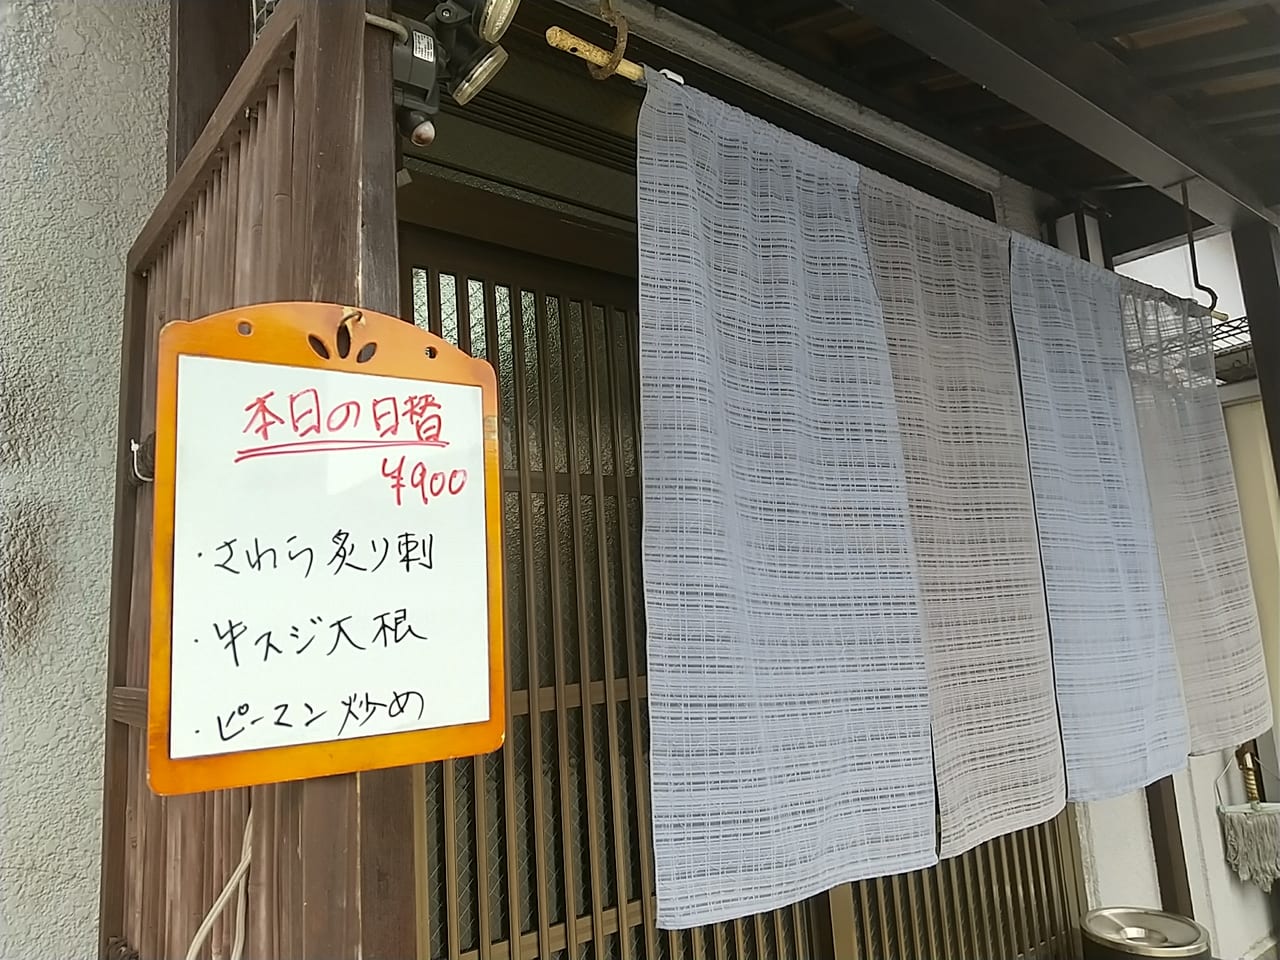 本日の日替
¥900
・さわら炙り刺
・牛スジ大根
・ピーマン炒め